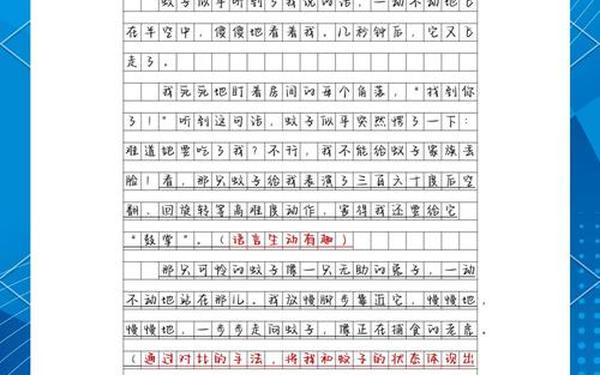 蚊子似乎听到了我说的话，一动不动地飞
在半空中，傻傻地看着我。几秒钟后，它又飞
走了。
我死死地盯着房间的每个角落，“找到你
了！”听到这句话，蚊子似乎突然愣了一下：
难道她要吃了我？不行，我不能给蚊子家族丢
脸！看，那只蚊子给我表演了三百六十度后空
翻、回旋转等高难度动作，害得我还要给它
“鼓掌”。（语言生动有趣）
那只可怜的蚊子像一只无助的兔子，一动
不动地站在那儿。我放慢脚步靠近它，慢慢地，
慢慢地，一步步走向蚊子，像正在捕食的老虎。
（通过对比的手法，将我和蚊子的状态体现出